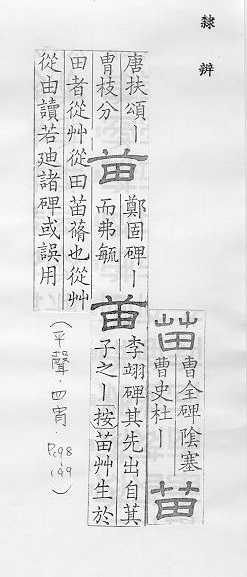 隸辨
苗
曹全碑陰塞
曹史杜丨
苗
唐扶頌丨
胄枝分
苗
鄭固碑丨
而弗毓
苗
李翊碑其先出自萁
子之丨按苗艸生於
田者從艸從田苗蓨也從艸
從由讀若廸諸碑或誤用
(平聲·四宵· P.98